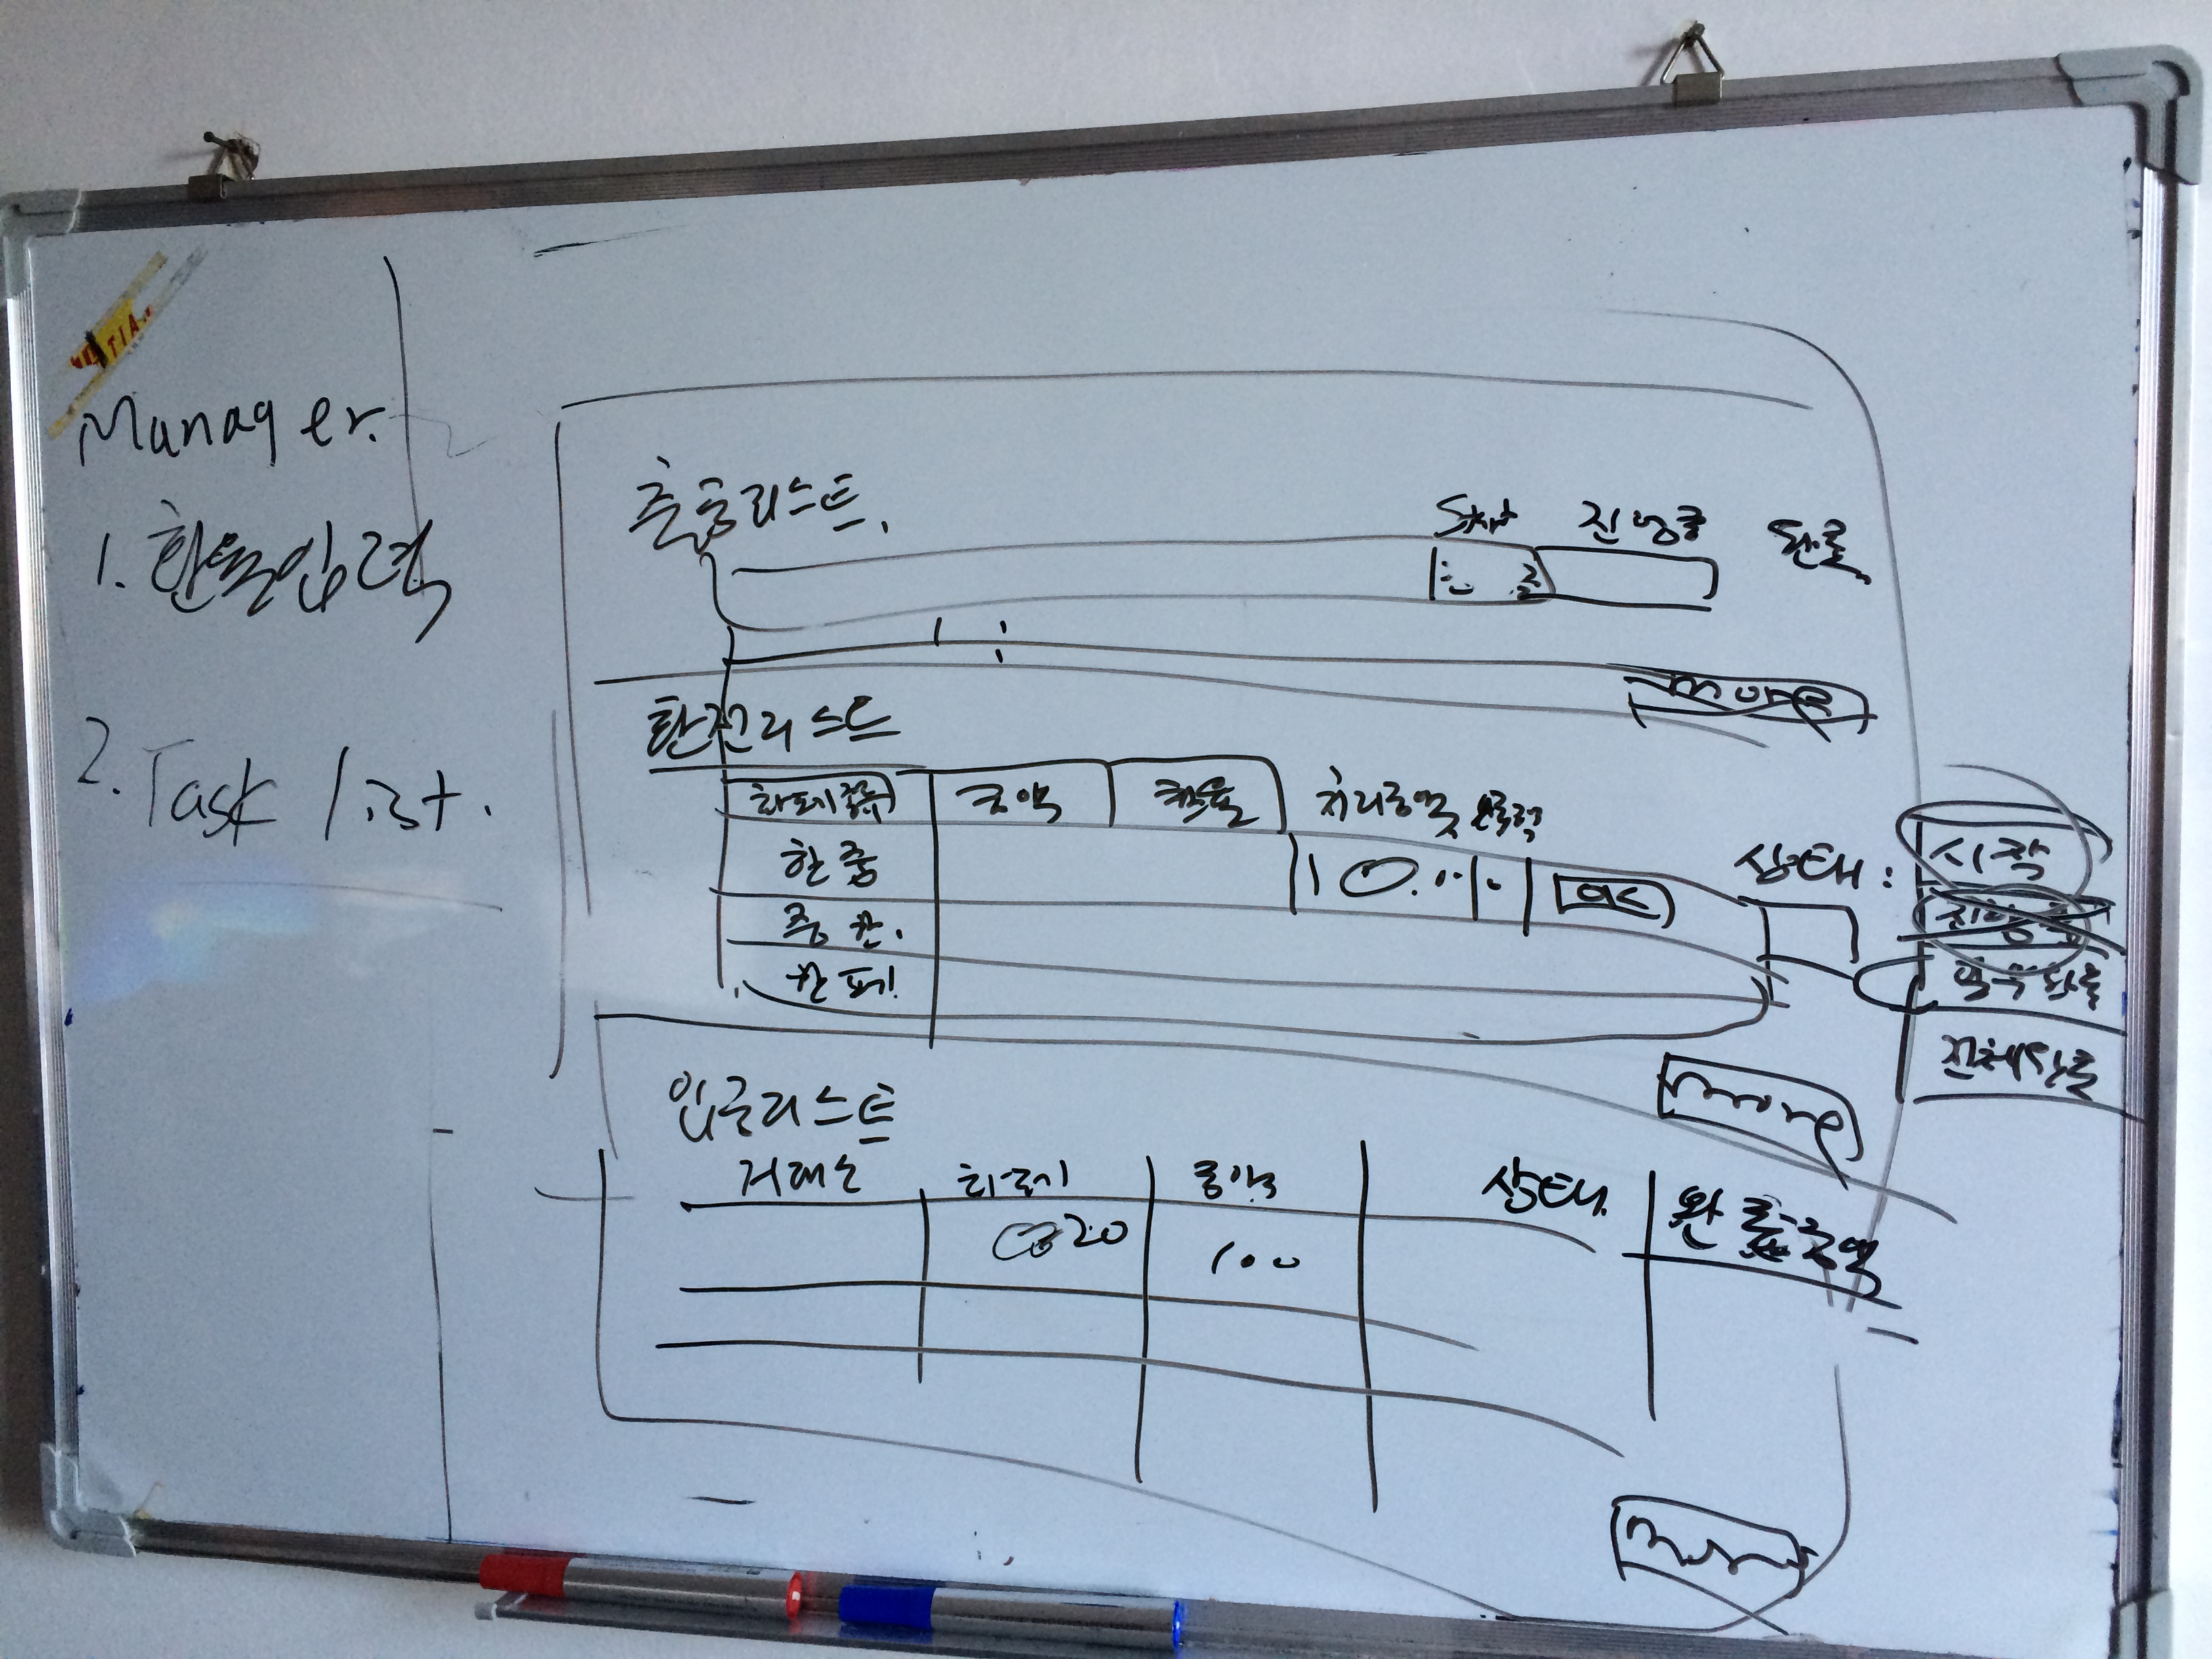 Manager.
1. 환율입력
2. Task list.
출금리스트.
Start 진행중 완료
more
환전리스트
화폐종류 금액 환율 처리금액 입력
한중
중한.
한페!
OK
상태: 시작
진행중
일부완료
전체완료
more
입금리스트
거래소 화폐 금액 상태. 완료금액
100
more